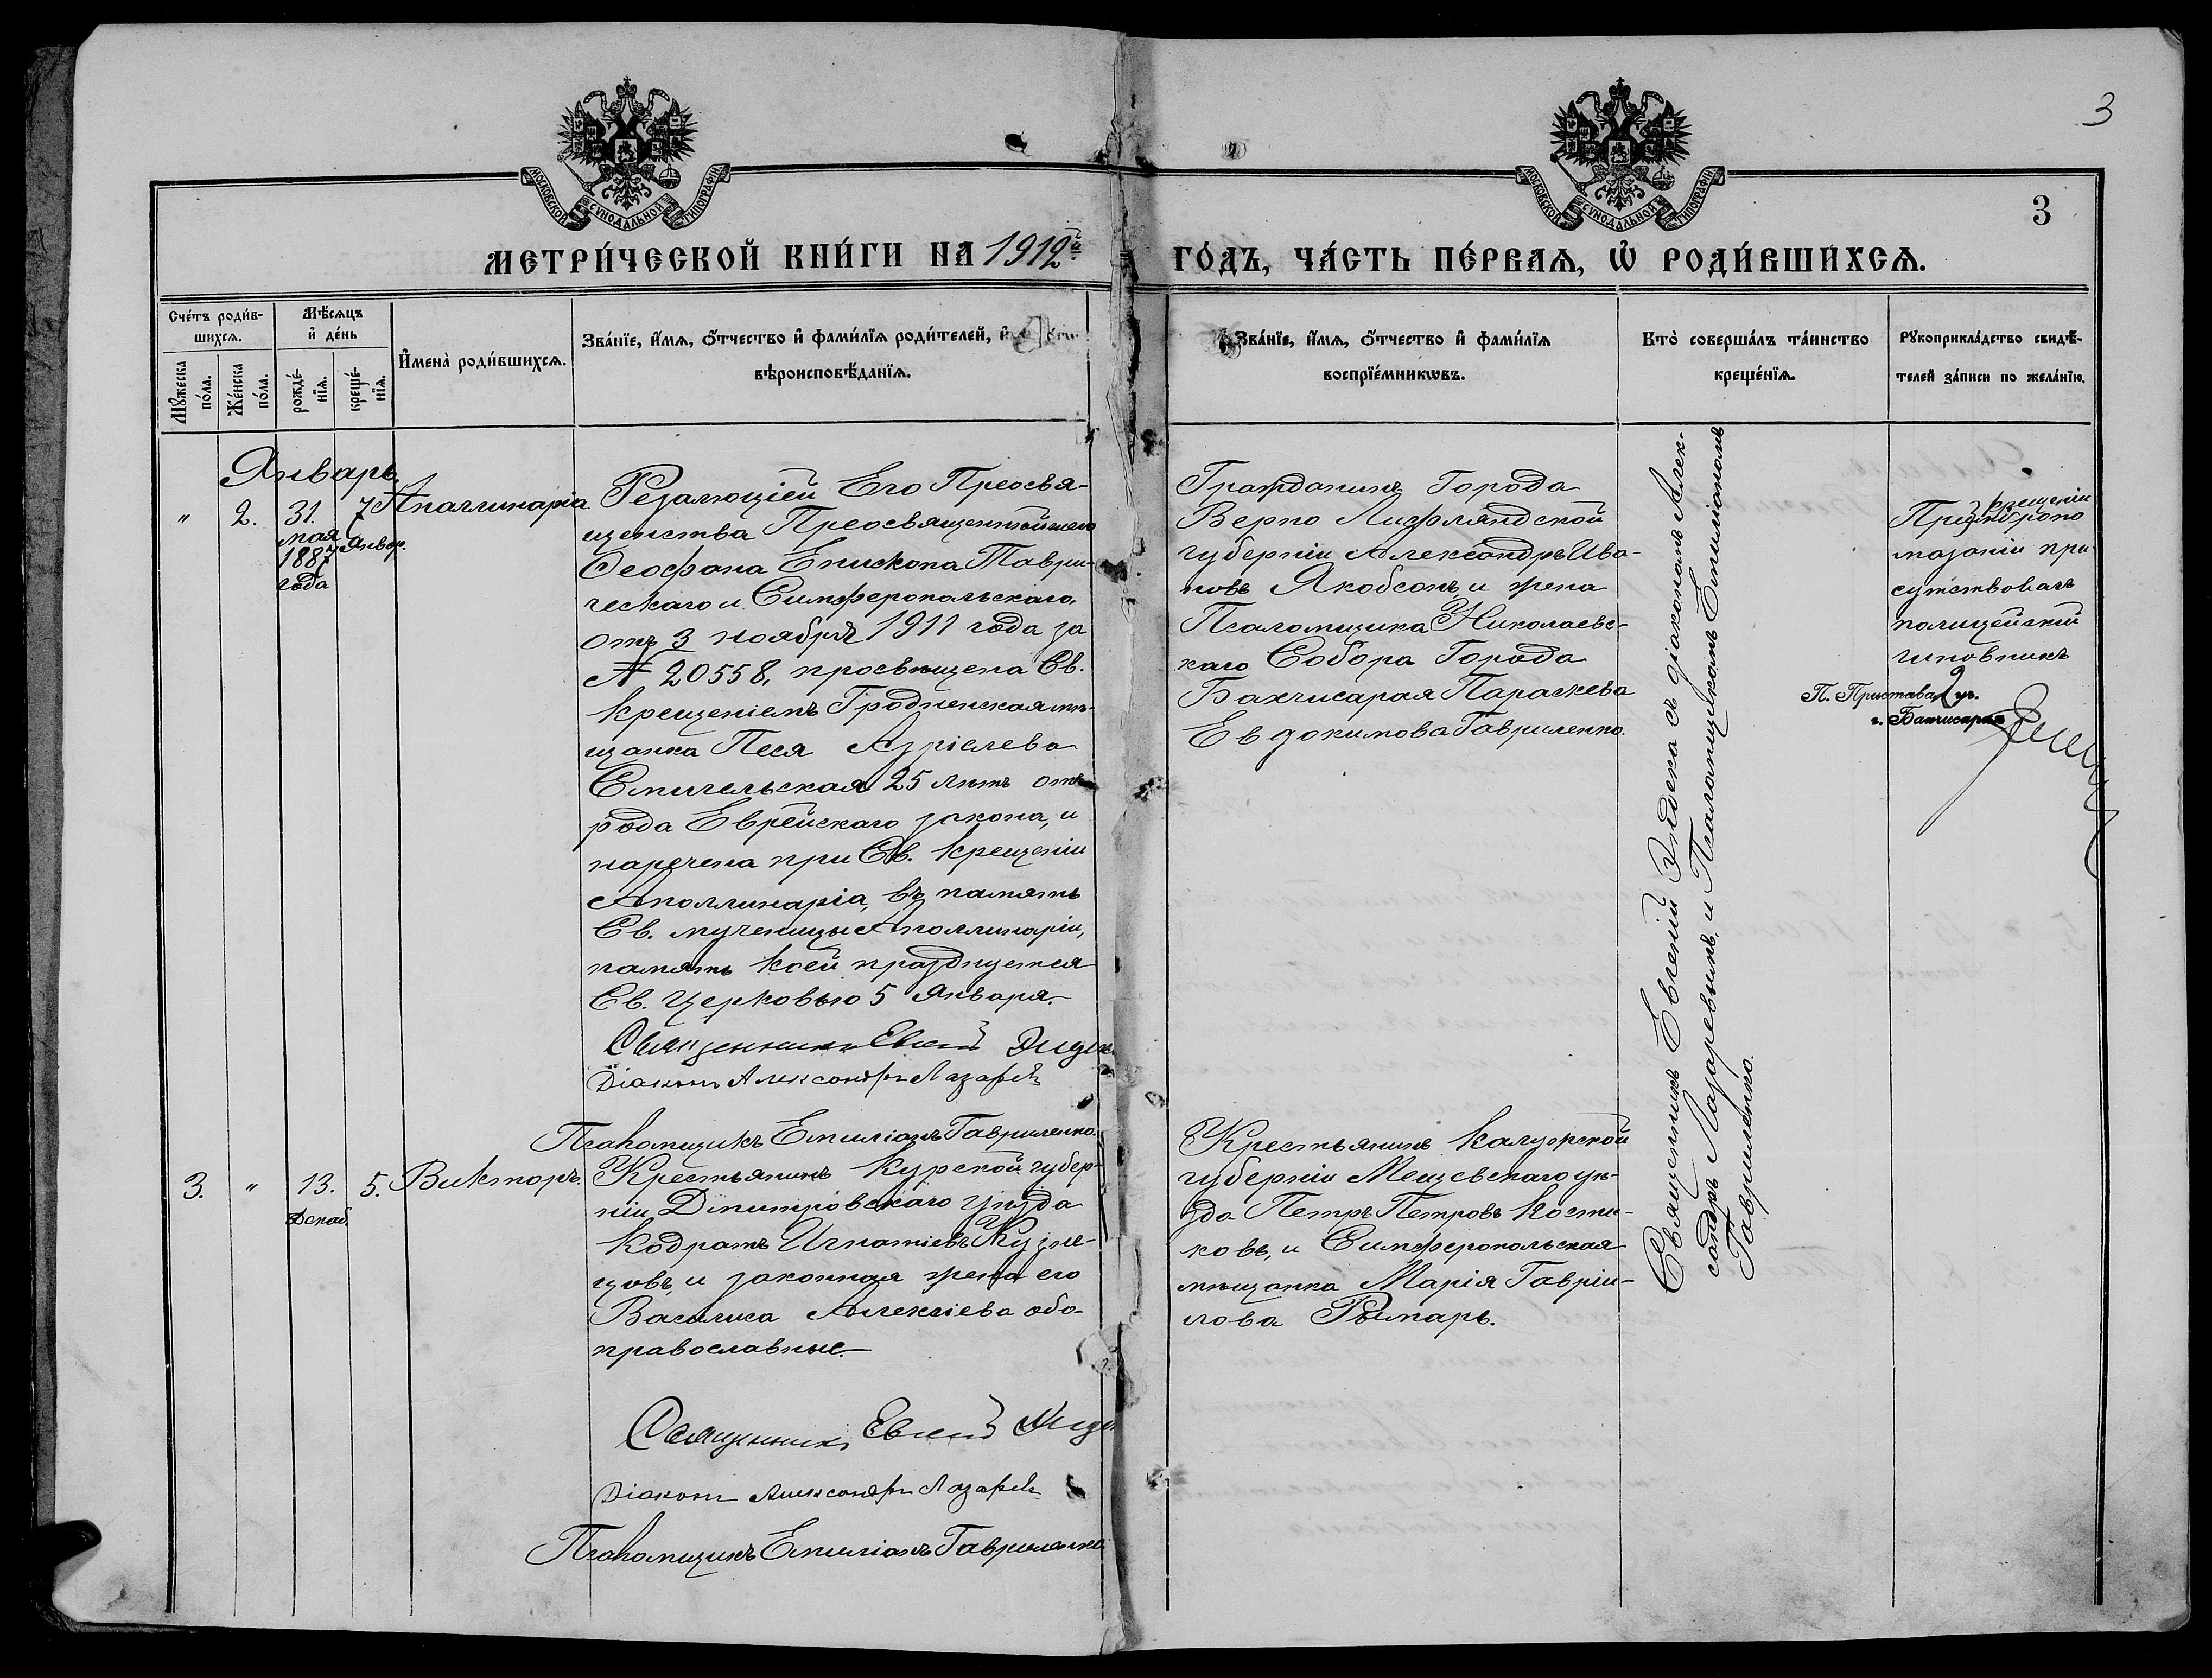 3
МОСКОВСКОЙ СѴНОДАЛЬНОЙ ТИПОГРАФІИ
МОСКОВСКОЙ СѴНОДАЛЬНОЙ ТИПОГРАФІИ
3
МЕТРИ́ЧЕСКОЙ КНИ́ГИ НА 1912й
ГО́ДЪ, ЧА́СТЬ ПЕ́РВАѦ, Ѡ РОДИ́ВШИХСѦ.
Сче́тъ роди́в-
шихсѧ.
Мꙋжеска
по́ла.
Же́нска
по́ла.
Мѣ́сѧцъ
и҆ де́нь
рожде́-
нїѧ.
креще́-
нїѧ.
И҆мена̀ роди́вшихсѧ.
Зва́нїе, и҆́мѧ, ѻ҆́тчество и҆ фами́лїѧ роди́телей, и҆
вѣроисповѣ́данїѧ.
Зва́нїе, и҆́мѧ, ѻ҆́тчество и҆ фами́лїѧ
воспрїе́мникѡвъ.
Кто̀ соверша́лъ та́инство
креще́нїѧ.
Рꙋкоприкла́дство свидѣ́-
телей за́писи по жела́нїю.
Январь.
"
2.
31.
мая
1887
года
7
Январ.
Апаллинарія.
Резалюціей Его Преосвя-
щенства Преосвященнѣйшаго
Ѳеофана Епископа Таври-
ческаго и Симферопольскаго,
отъ 3 ноября 1911 года за
№ 20558, просвѣщена Св.
Крещеніемъ Гродненская мѣ-
щанка Песя Азріелева
Смигельская 25 лѣтъ отъ
рода Еврейскаго закона, и
наречена при Св. Крещеніи
Аполлинарія, въ память
Св. мученицы Аполлинаріи,
память коей празднуется
Св. Церковью 5 Января.
Священникъ Евгеній
Діаконъ Александръ Лазаревъ
Псаломщикъ Емиліанъ Гавриленко.
Гражданинъ Города
Верро Лифляндской
губерніи Александръ Ива-
новъ Якобсонъ и жена
Псаломщика Николаевс-
каго Собора Города
Бахчисарая Параскева
Евдокимова Гавриленко.
Священникъ Евгеній Эндека съ діакономъ Алек-
сандръ Лазаревымъ, и Псаломщикомъ Емиліаномъ
Гавриленко.
крещеніи
При мѵропо
мазаніи при
сутствовалъ
полицейскій
чиновникъ
П. Пристава 2 уч.
г. Бахчисарая
3.
"
13.
Декаб.
5.
Викторъ.
Крестьянинъ Курской губер-
ніи Дмитровскаго уѣзда
Кодратъ Игнатіевъ Кузне-
цовъ, и законная жена его
Василиса Алексіева оба
православные.
Священникъ Евгеній
Діаконъ Александръ Лазаревъ
Псаломщикъ Емиліанъ Гавриленко
Крестьянинъ Калужской
губерніи Мещевскаго уѣ-
зда Петръ Петровъ Кости-
ковъ, и Симферопольская
мѣщанка Марія Гаврiи-
лова Рымарь.